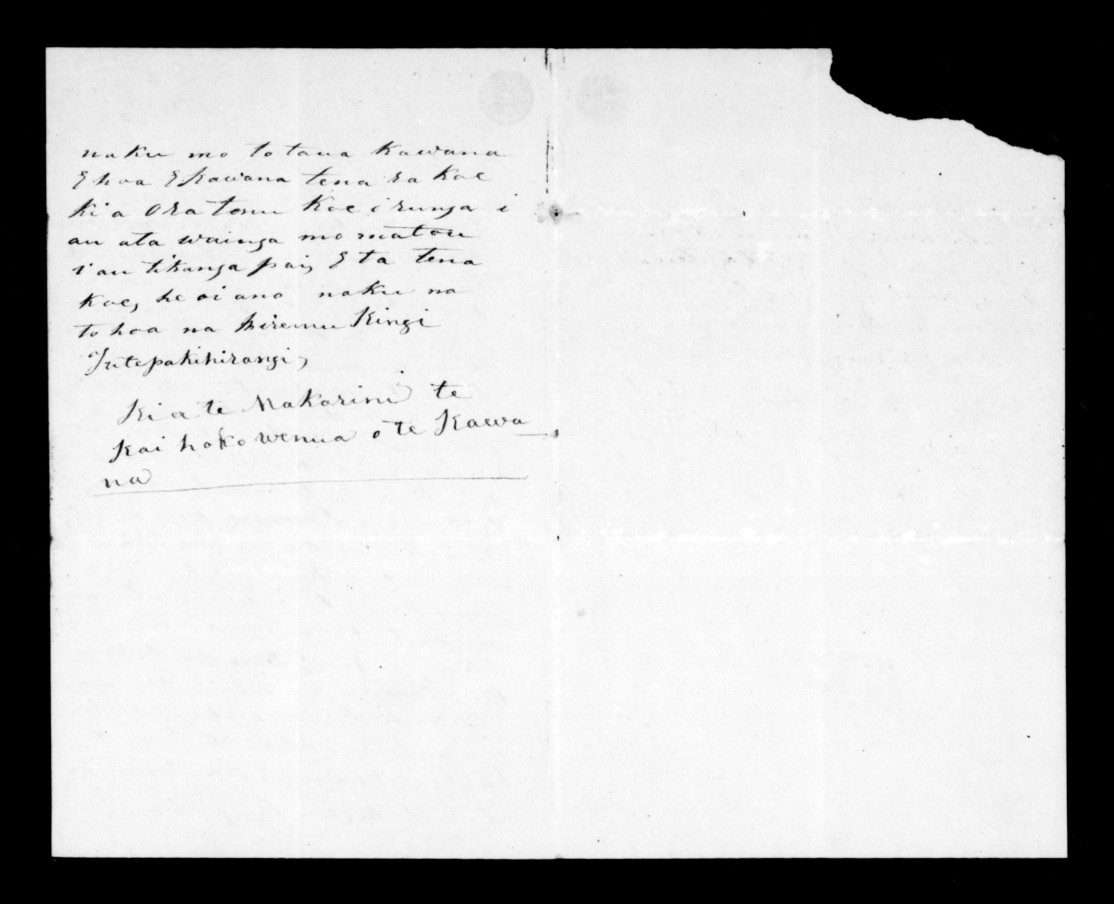 naku mo to taua Kawana
E hoa E kawana tena ra koe
kia Ora tonu Koe i runga i
au ata wainga mo matou
i au tikanga pai, E ta tena
koe, he oi ano naku na
to hoa na wiremu Kingi
Tutepakihirangi,
Ki a te Makarini te
Kai hoko wenua o te Kawa
na